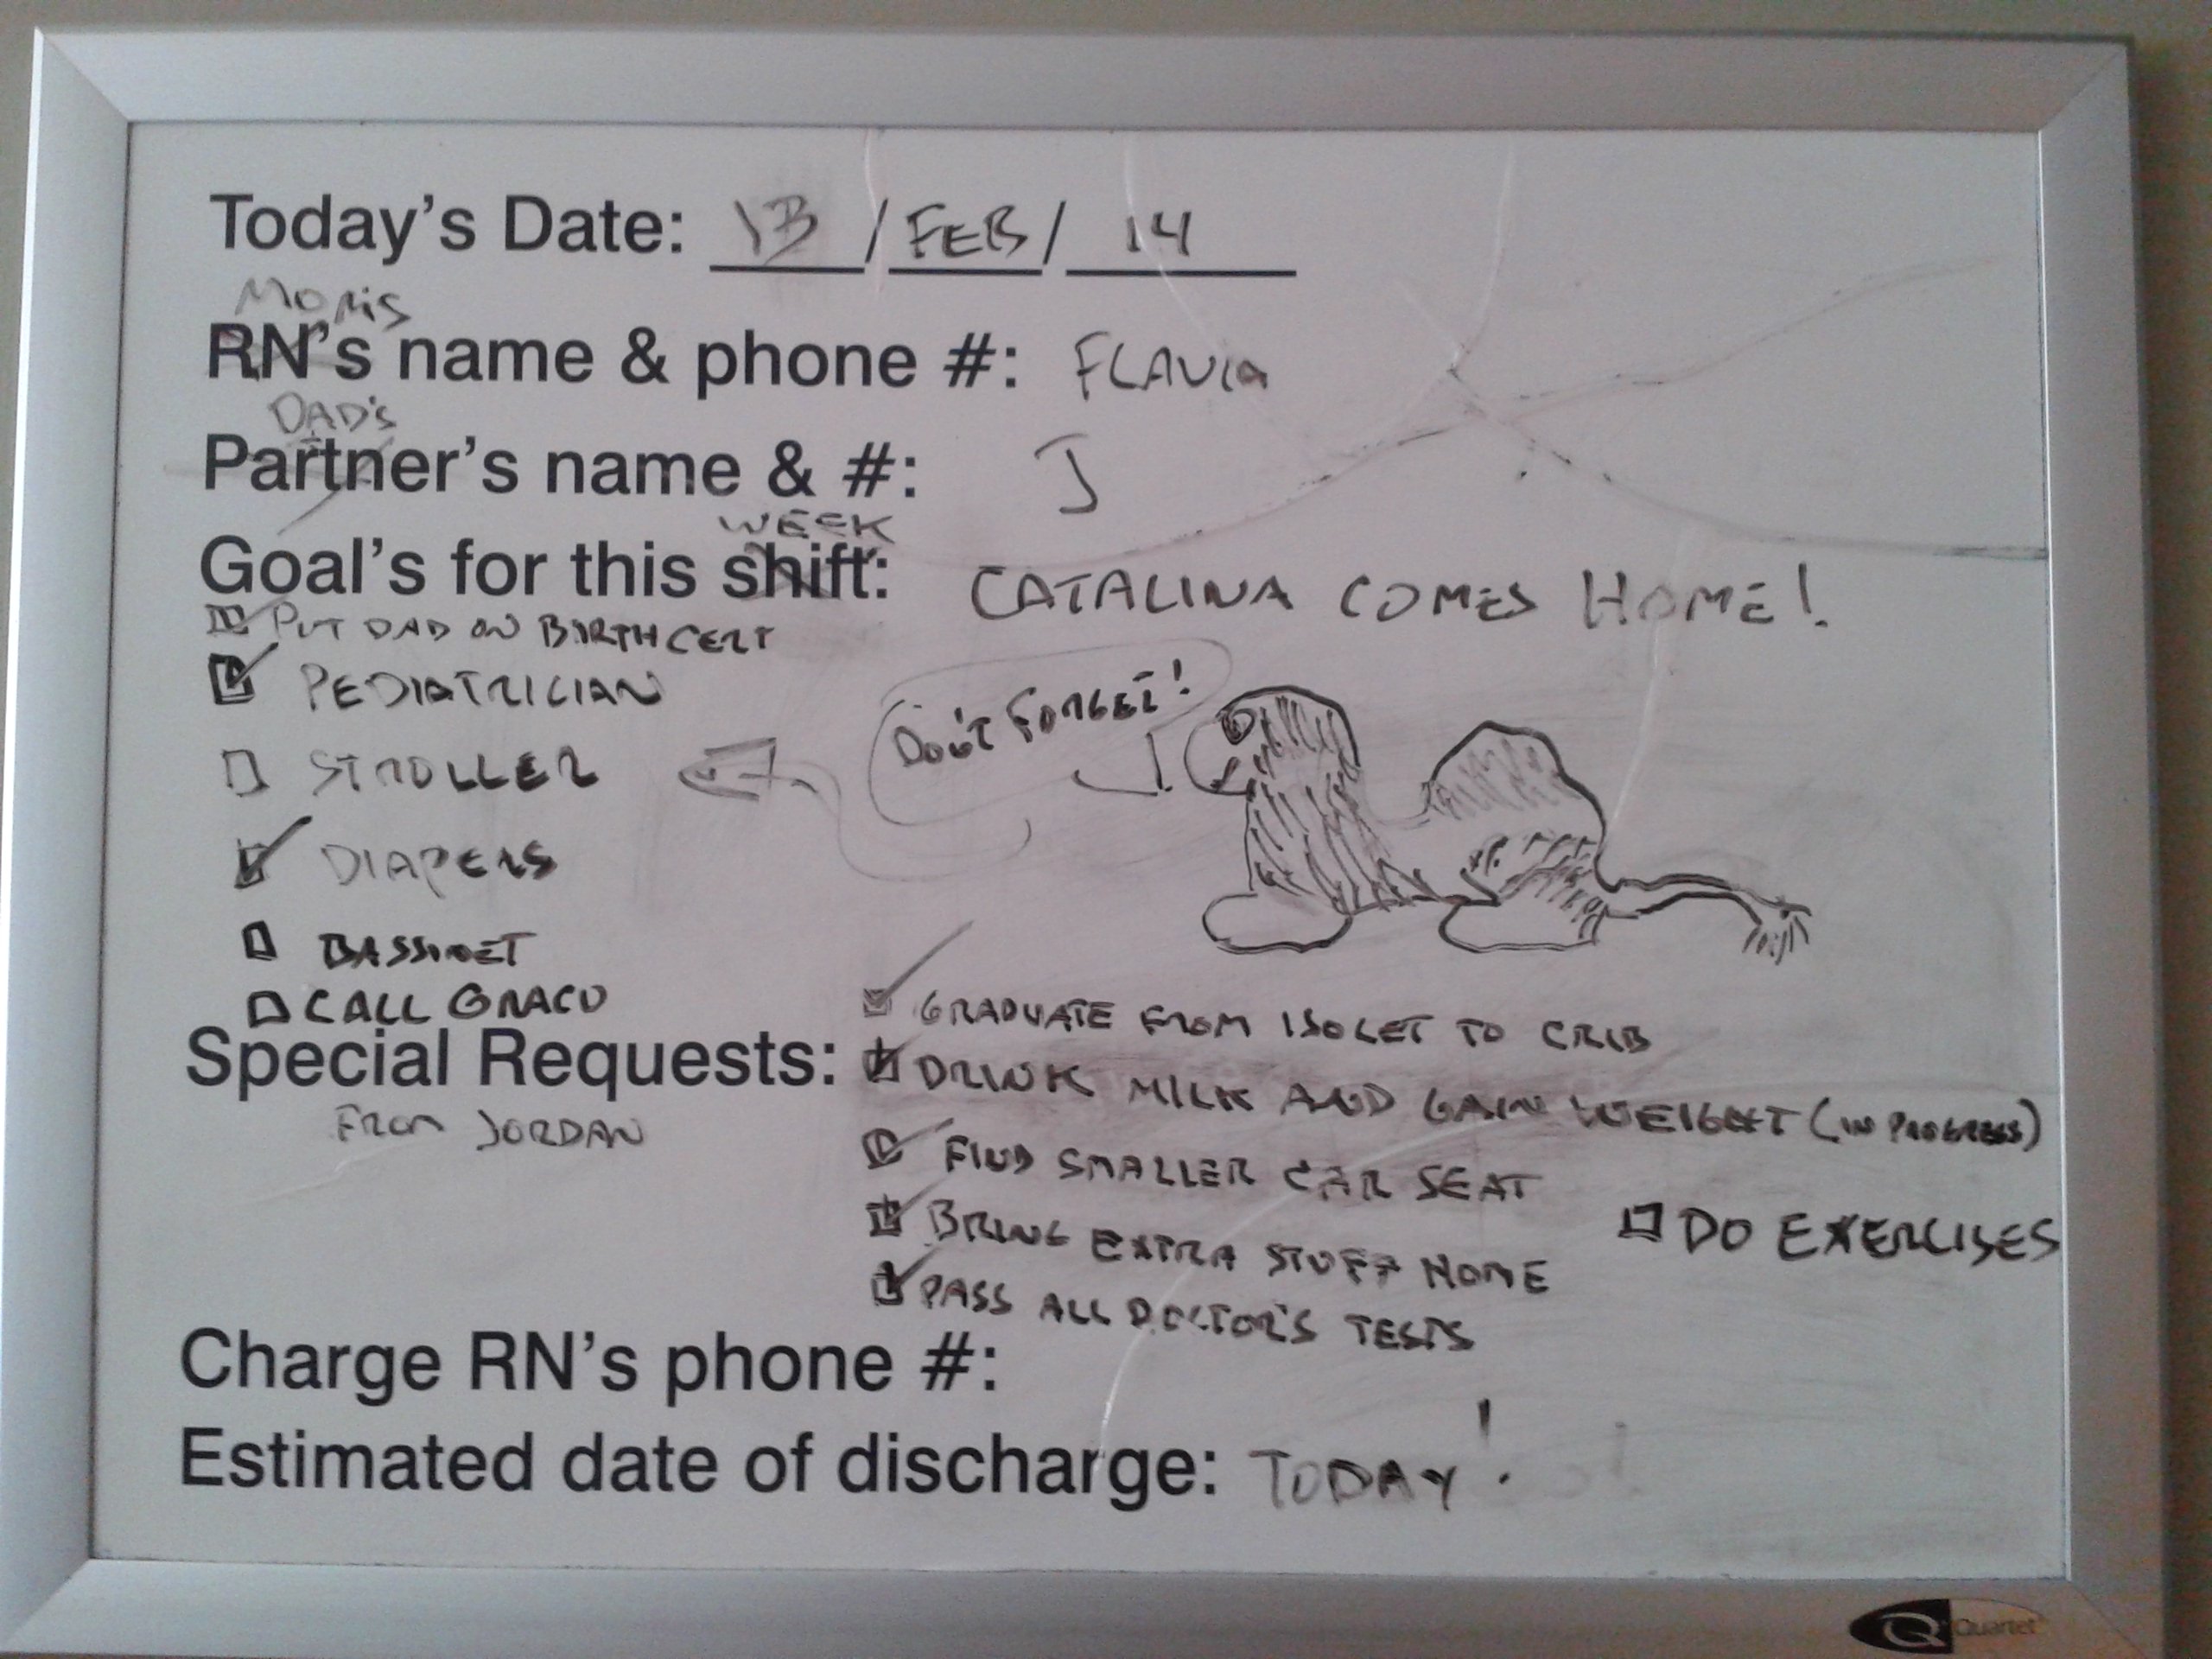 Today's Date: 13 / FEB / 14
MOM'S
RN's name & phone #: FLAVIA
DAD's
Partner's name & #: J
WEEK
Goal's for this shift: CATALINA COMES HOME!
PUT DAD ON BIRTH CERT
PEDIATRICIAN
DON'T FORGET!
STROLLER
DIAPERS
BASSINET
CALL GRACO
GRADUATE FROM ISOLET TO CRIB
Special Requests: DRINK MILK AND GAIN WEIGHT (IN PROGRESS)
FROM JORDAN
FIND SMALLER CAR SEAT
BRING EXTRA STUFF HOME
DO EXERCISES
PASS ALL DOCTOR'S TESTS
Charge RN's phone #:
Estimated date of discharge: TODAY!
Quartet